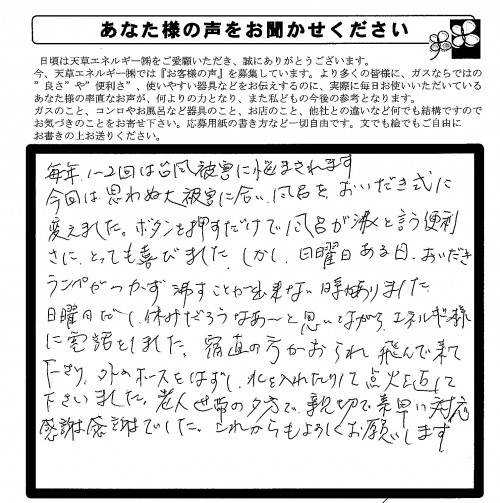 あなた様の声をお聞かせください
日頃は天草エネルギー㈱をご愛顧いただき、誠にありがとうございます。
今、天草エネルギー㈱では『お客様の声』を募集しています。より多くの皆様に、ガスならではの
”良さ”や”便利さ”、使いやすい器具などをお伝えするのに、実際に毎日お使いいただいている
あなた様の率直なお声が、何よりの力となり、また私どもの今後の参考となります。
ガスのこと、コンロやお風呂など器具のこと、お店のこと、他社との違いなど何でも結構ですので
お気づきのことをお寄せ下さい。応募用紙の書き方など一切自由です。文でも絵でもご自由に
お書きの上お送りください。
毎年、1~2回は台風被害に悩まされます
今回は思わぬ大被害に合い、風呂を、おいだき式に
変えました。ボタンを押すだけで風呂が沸くと言う便利
さに、とっても喜びました。しかし、日曜日ある日、おいだき
ランプがつかず沸すことが出来ない時がありました
日曜日だし、休みだろうなあ～と思いながら、エネルギー様
に電話をしました。宿直の方がおられ飛んで来て
下さり、外のホースをはずし、水を入れたりして点火を直して
下さいました。老人世帯の夕方で、親切で素早い対応
感謝感謝でした。これからもよろしくお願いします